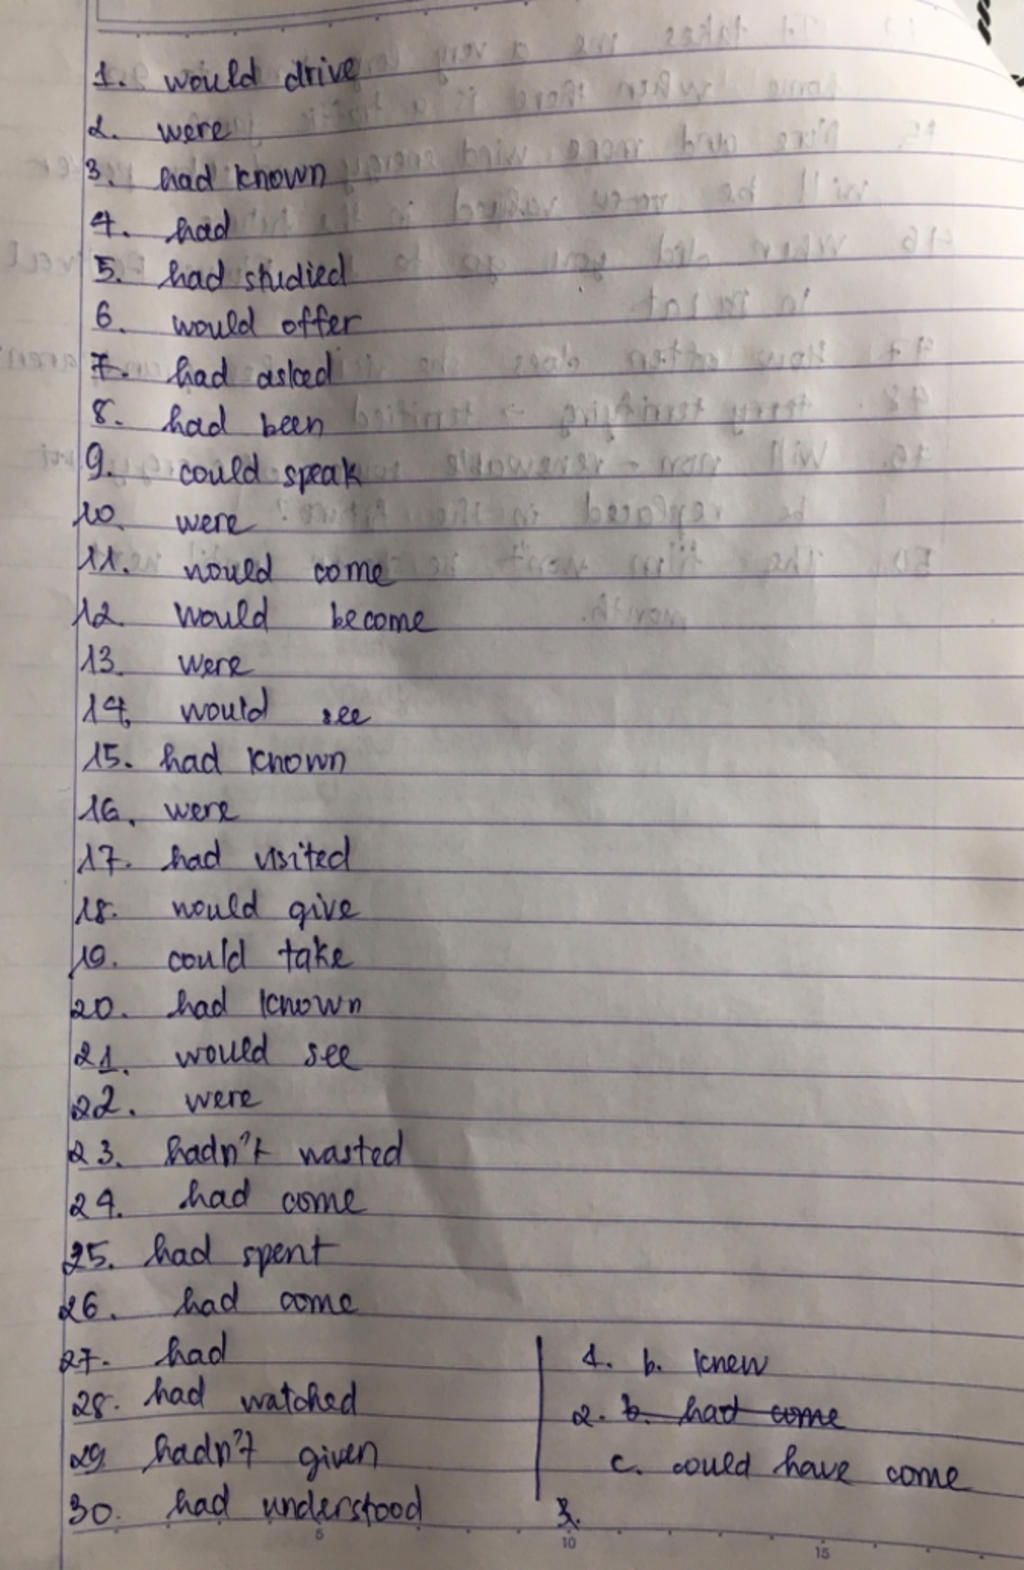 1. would drive
2. were
3. had known
4. had
5. had studied
6. would offer
7. had asked
8. had been
9. could speak
10. were
11. would come
12. would become
13. were
14. would see
15. had known
16. were
17. had visited
18. would give
19. could take
20. had known
21. would see
22. were
23. hadn't wasted
24. had come
25. had spent
26. had come
27. had
28. had watched
29 hadn't given
30. had understood
1. b. knew
2. b. had come
c. could have come
3.
5
10
15